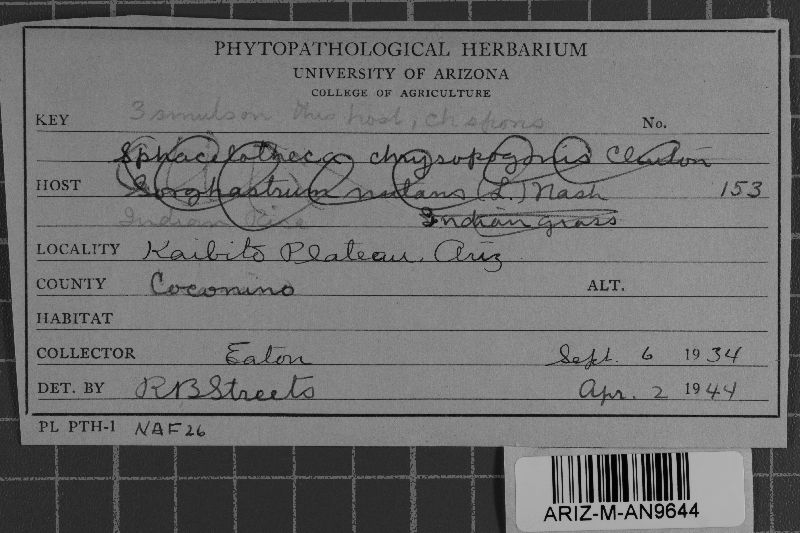 PHYTOPATHOLOGICAL HERBARIUM
UNIVERSITY OF ARIZONA
COLLEGE OF AGRICULTURE
3 smuts on this host, ck spores
KEY No.
Sphacelotheca chrysopogonis Clinton
HOST Sorghastrum nutans (L.) Nash 153
Indian Rice Indian grass
LOCALITY Kaibito Plateau, Ariz
COUNTY Coconino ALT.
HABITAT
COLLECTOR Eaton Sept. 6 1934
DET. BY RBStreets Apr. 2 1944
PL PTH-1 NAF26
ARIZ-M-AN9644